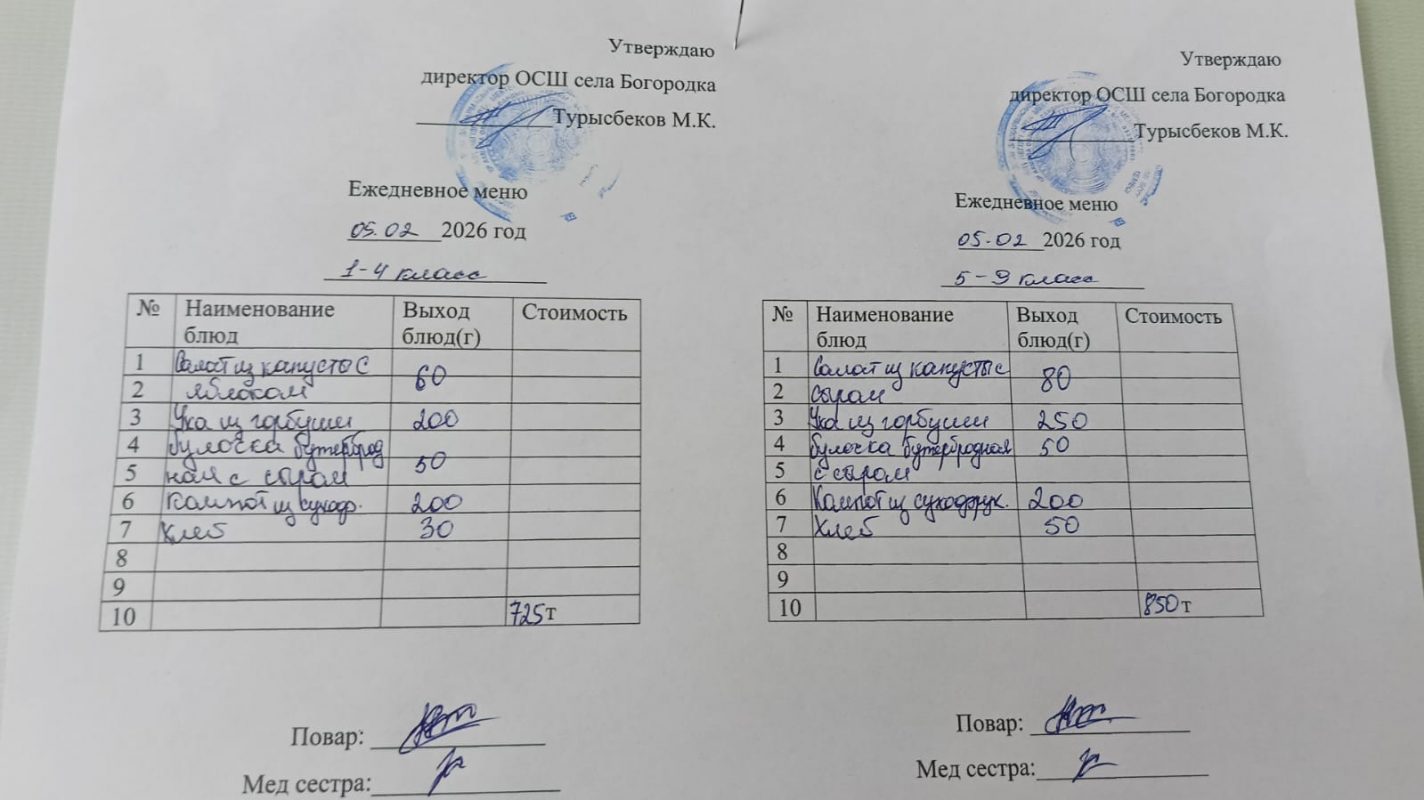 Утверждаю
директор ОСШ села Богородка
Турысбеков М.К.
Ежедневное меню
05.02 2026 год
1-4 класс
№ Наименование блюд Выход блюд(г) Стоимость
1 Салат из капусты с
2 яблоком 60
3 Уха из горбуши 200
4 булочка бутерброд
5 ная с сыром 50
6 Компот из сухофр. 200
7 Хлеб 30
8
9
10 725 т
Повар:
Мед сестра:
Утверждаю
директор ОСШ села Богородка
Турысбеков М.К.
Ежедневное меню
05.02 2026 год
5-9 класс
№ Наименование блюд Выход блюд(г) Стоимость
1 Салат из капусты с
2 сыром 80
3 Уха из горбуши 250
4 булочка бутербродная 50
5 с сыром
6 Компот из сухофрук. 200
7 Хлеб 50
8
9
10 850 т
Повар:
Мед сестра: